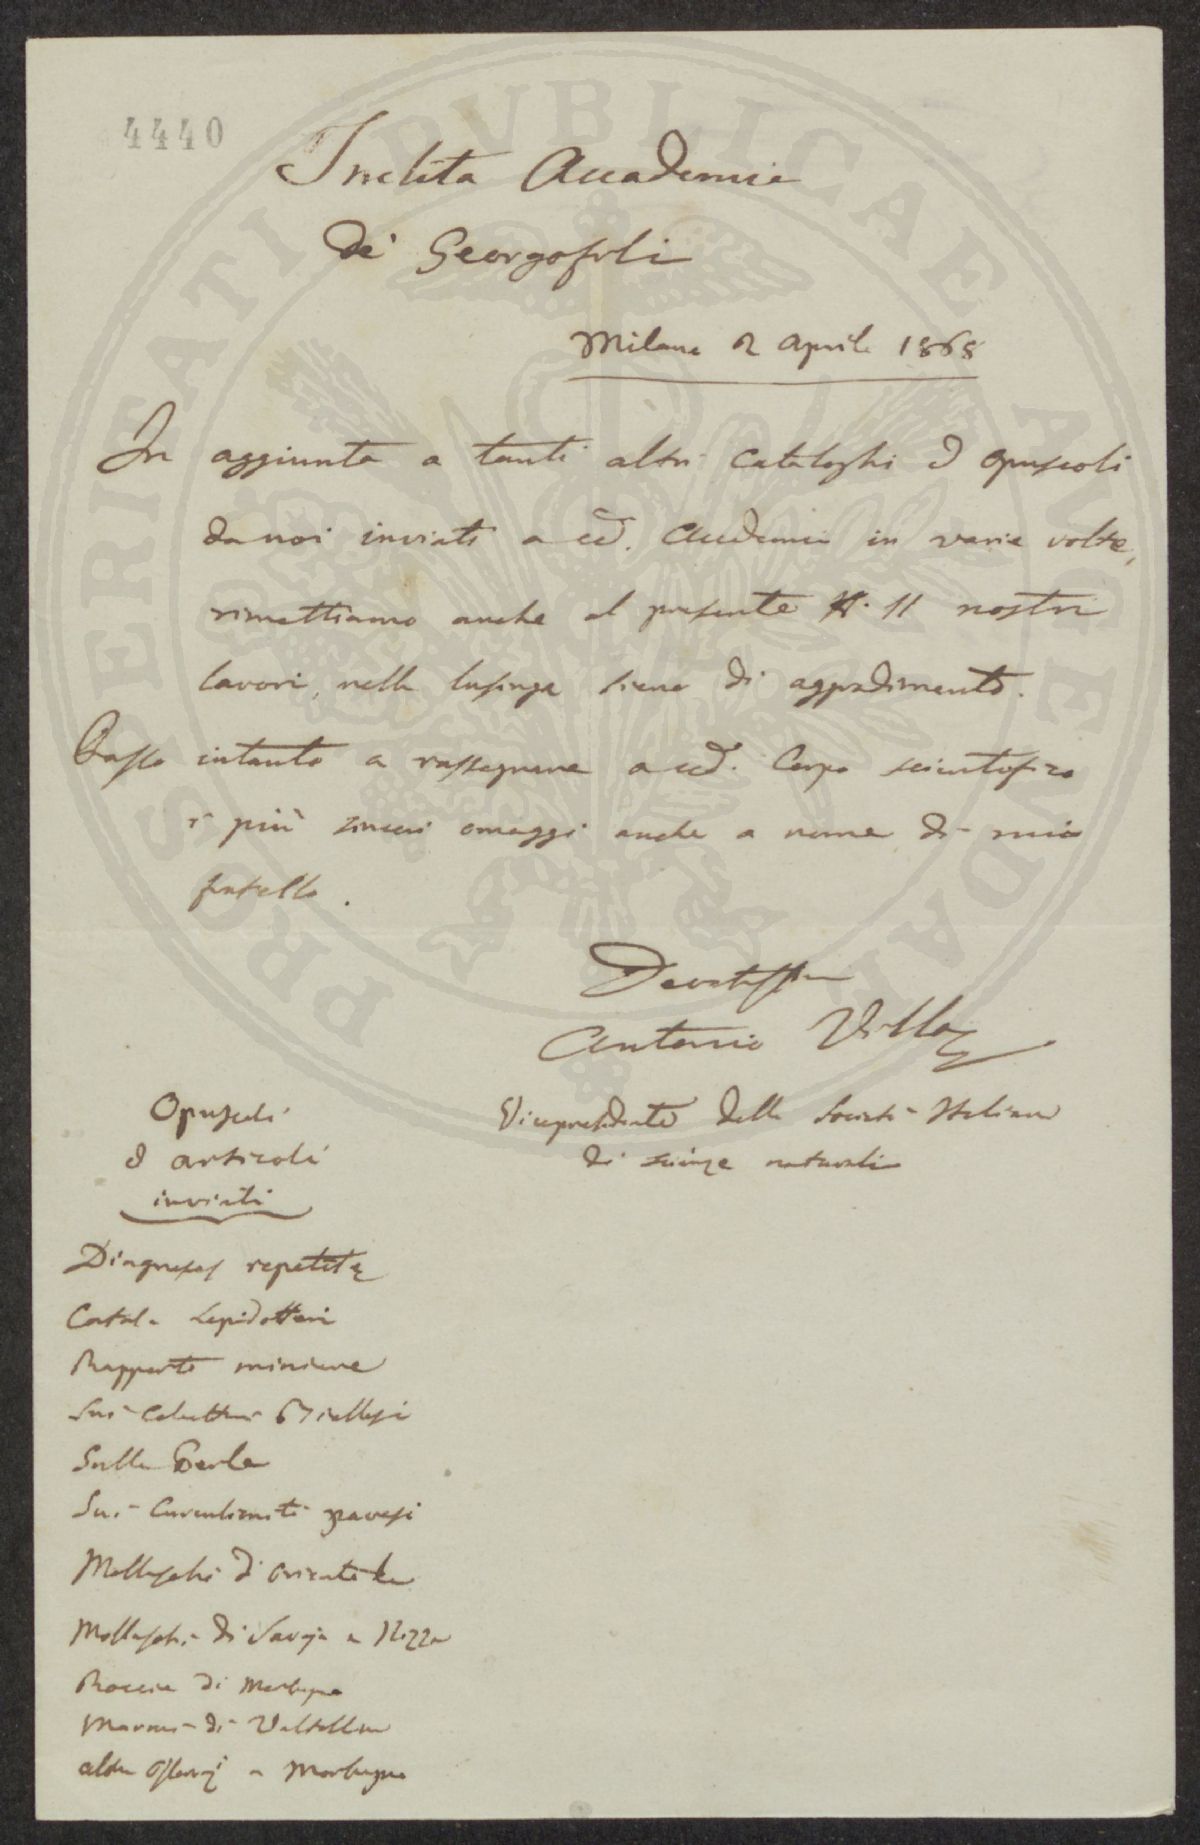 4440
Inclita Accademia
de' Georgofili
Milano 2 Aprile 1868
In aggiunta a tanti altri cataloghi ed opuscoli
da noi inviati a cod. Accademia in varie volte,
rimettiamo anche al presente N. 11 nostri
lavori, nella lusinga siano di aggradimento.
Passo intanto a rassegnare a cod. Corpo scientifico
i più sinceri omaggi anche a nome di mio
fratello.
Devotissimo
Antonio Villa
Vicepresidente della Società Italiana
di scienze naturali
Opuscoli
ed articoli
inviati
Diagnoses repetitæ
Catal. Lepidotteri
Rapporto miniere
Sui Coleotteri Biellesi
Sulle Perle
Sui Curculioniti pavesi
Molluschi d'
Molluschi di Savoja e Nizza
Roccie di Morbegno
Marmi di Valtellina
altre Osservaz.i a Morbegno
PROSPERITATI PVBLICAE AVGENDAE